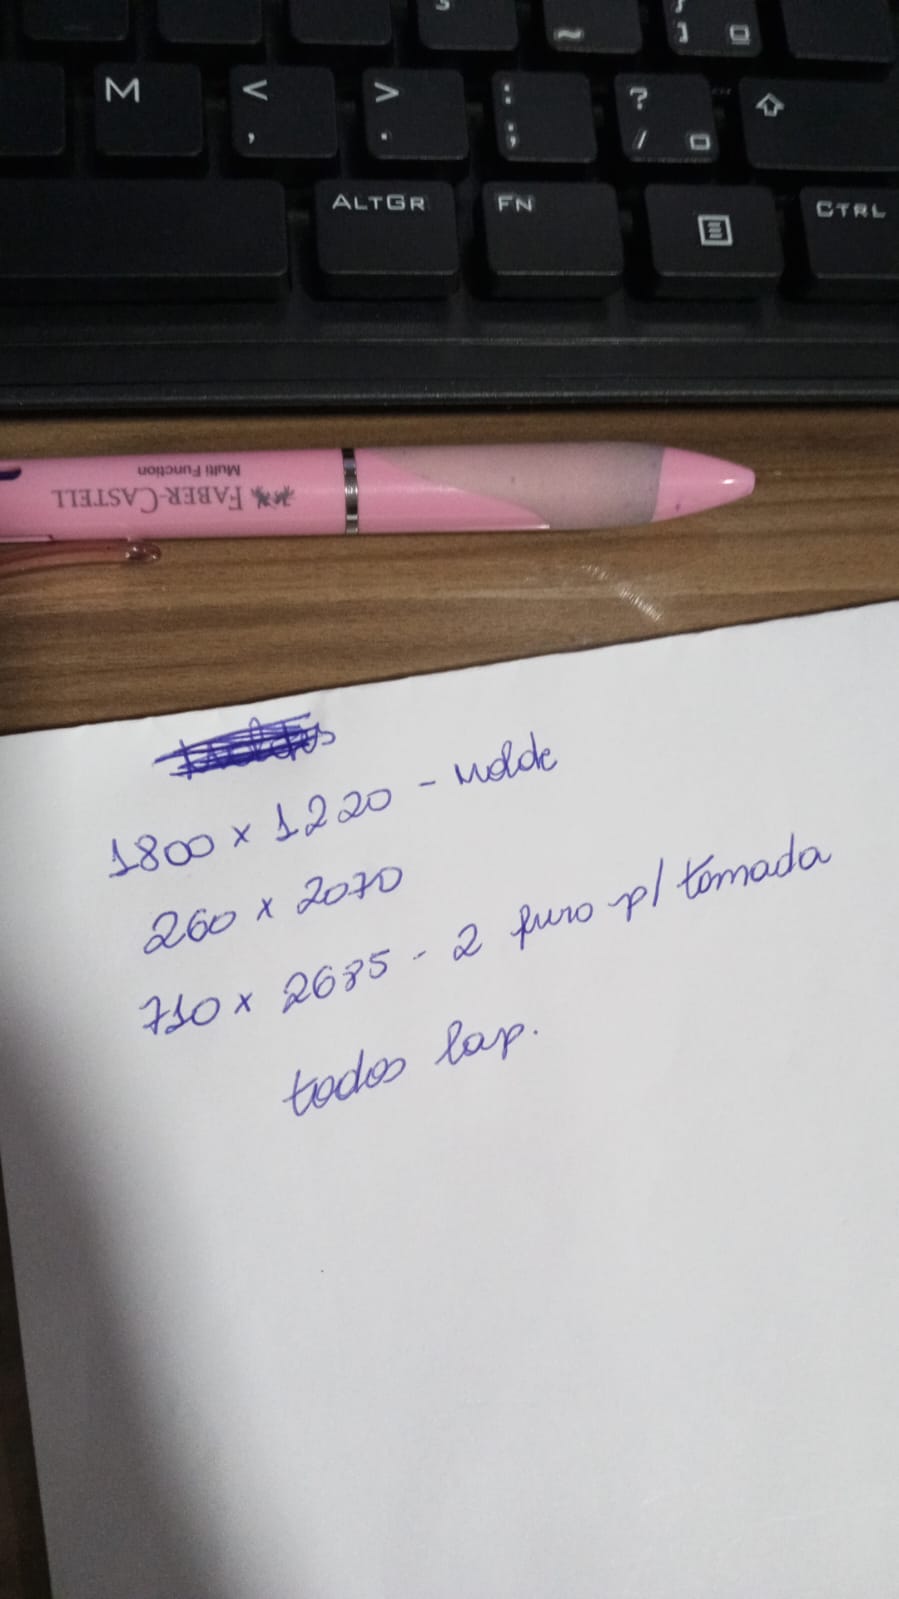 M
<
,
>
.
:
;
?
/
~
]
ALTGR
FN
CTRL
FABER-CASTELL
Multi Function
1800 x 1220 - Molde
260 x 2070
710 x 2685 - 2 furo p/ tomada
todos lap.